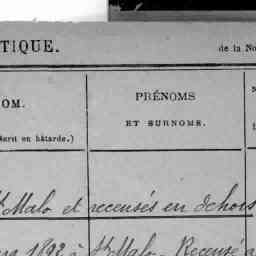 TIQUE. de la No
OM. PRÉNOMS
ET SURNOMS.
écrit en bâtarde.)
t Malo et recensés en dehors
1892 à St Malo - Recensé a